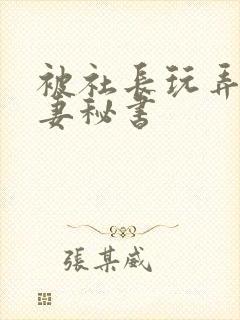 被社長玩弄
妻秘書
張某威